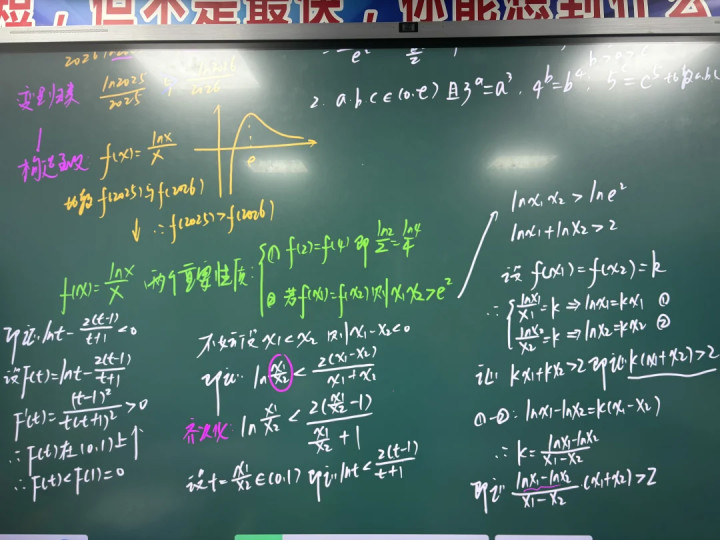 短，但不是最快，你能想到什么
2026 ln2025
变量归集 ln2025/2025 ln2026/2026
构造函数: f(x)=lnx/x
e
比较f(2025)与f(2026)
↓ ∴f(2025)>f(2026)
2. a.b.c∈(0,e)且3^a=a^3, 4^b=b^4, 5^c=c^5 比较a.b.c
f(x)=lnx/x,两个重要性质:
① f(2)=f(4) 即 ln2/2=ln4/4
② 若f(x₁)=f(x₂) 则 x₁x₂>e²
lnx₁x₂>lne²
lnx₁+lnx₂>2
设 f(x₁)=f(x₂)=k
∴ lnx₁/x₁=k⇒lnx₁=kx₁ ①
lnx₂/x₂=k⇒lnx₂=kx₂ ②
证: kx₁+kx₂>2 即证:k(x₁+x₂)>2
①-②: lnx₁-lnx₂=k(x₁-x₂)
∴k=(lnx₁-lnx₂)/(x₁-x₂)
即证: (lnx₁-lnx₂)/(x₁-x₂)·(x₁+x₂)>2
不妨设 x₁<x₂ 则 x₁-x₂<0
即证: ln x₁/x₂ < 2(x₁-x₂)/(x₁+x₂)
齐次化: ln x₁/x₂ < 2(x₁/x₂-1)/(x₁/x₂+1)
设t=x₁/x₂∈(0,1) 即证:lnt<2(t-1)/(t+1)
即证:lnt-2(t-1)/(t+1)<0
设F(t)=lnt-2(t-1)/(t+1)
F'(t)=(t-1)²/t(t+1)²>0
∴F(t)在(0,1)上↑
∴F(t)<F(1)=0